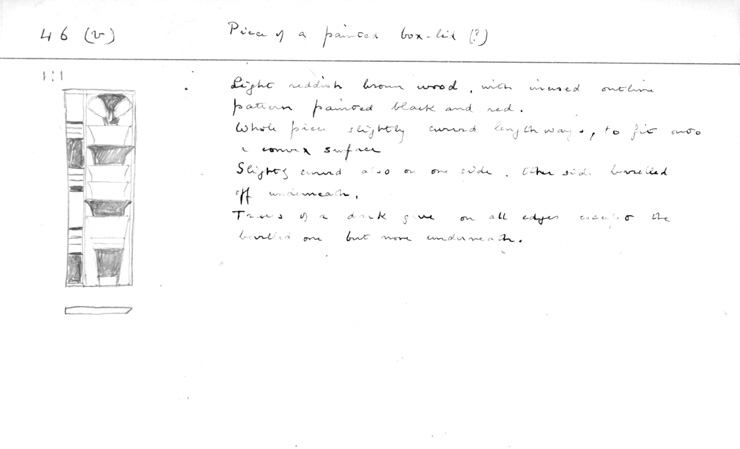 46 (v)
Piece of a painted box-lid (?)
1:1
Light reddish brown wood, with incised outline
pattern painted black and red.
Whole piece slightly curved lengthways, to fit onto
a convex surface
Slightly curved also on one side. Other side bevelled
off underneath.
Traces of a dark glue on all edges except the
bevelled one but none underneath.